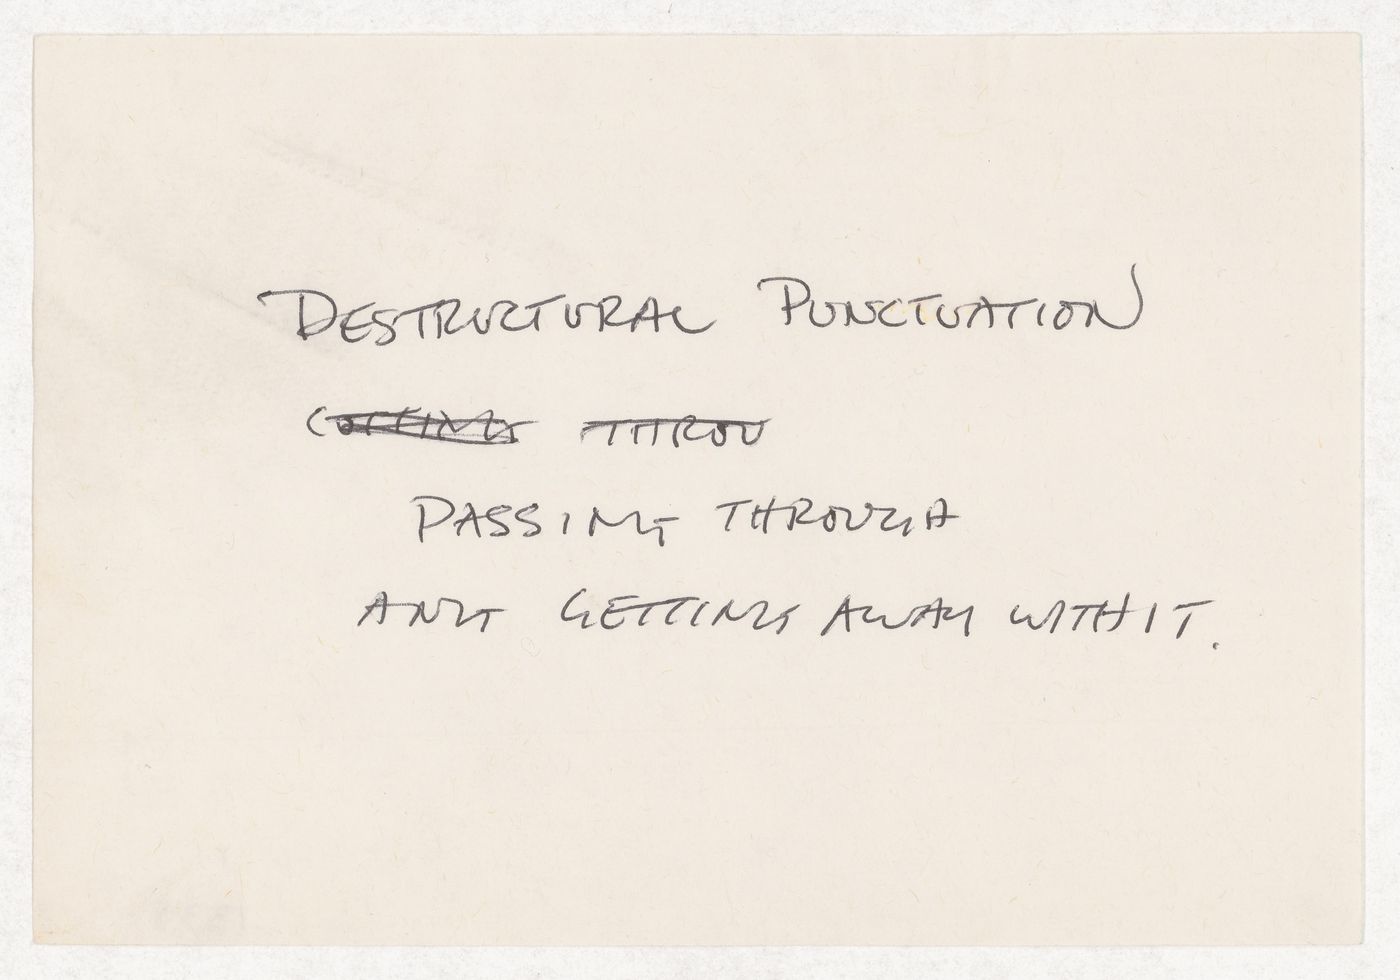 DESTRUCTURAL PUNCTUATION
CUTTING THROU
PASSING THROUGH
ANG GETTING AWAY WITH IT.